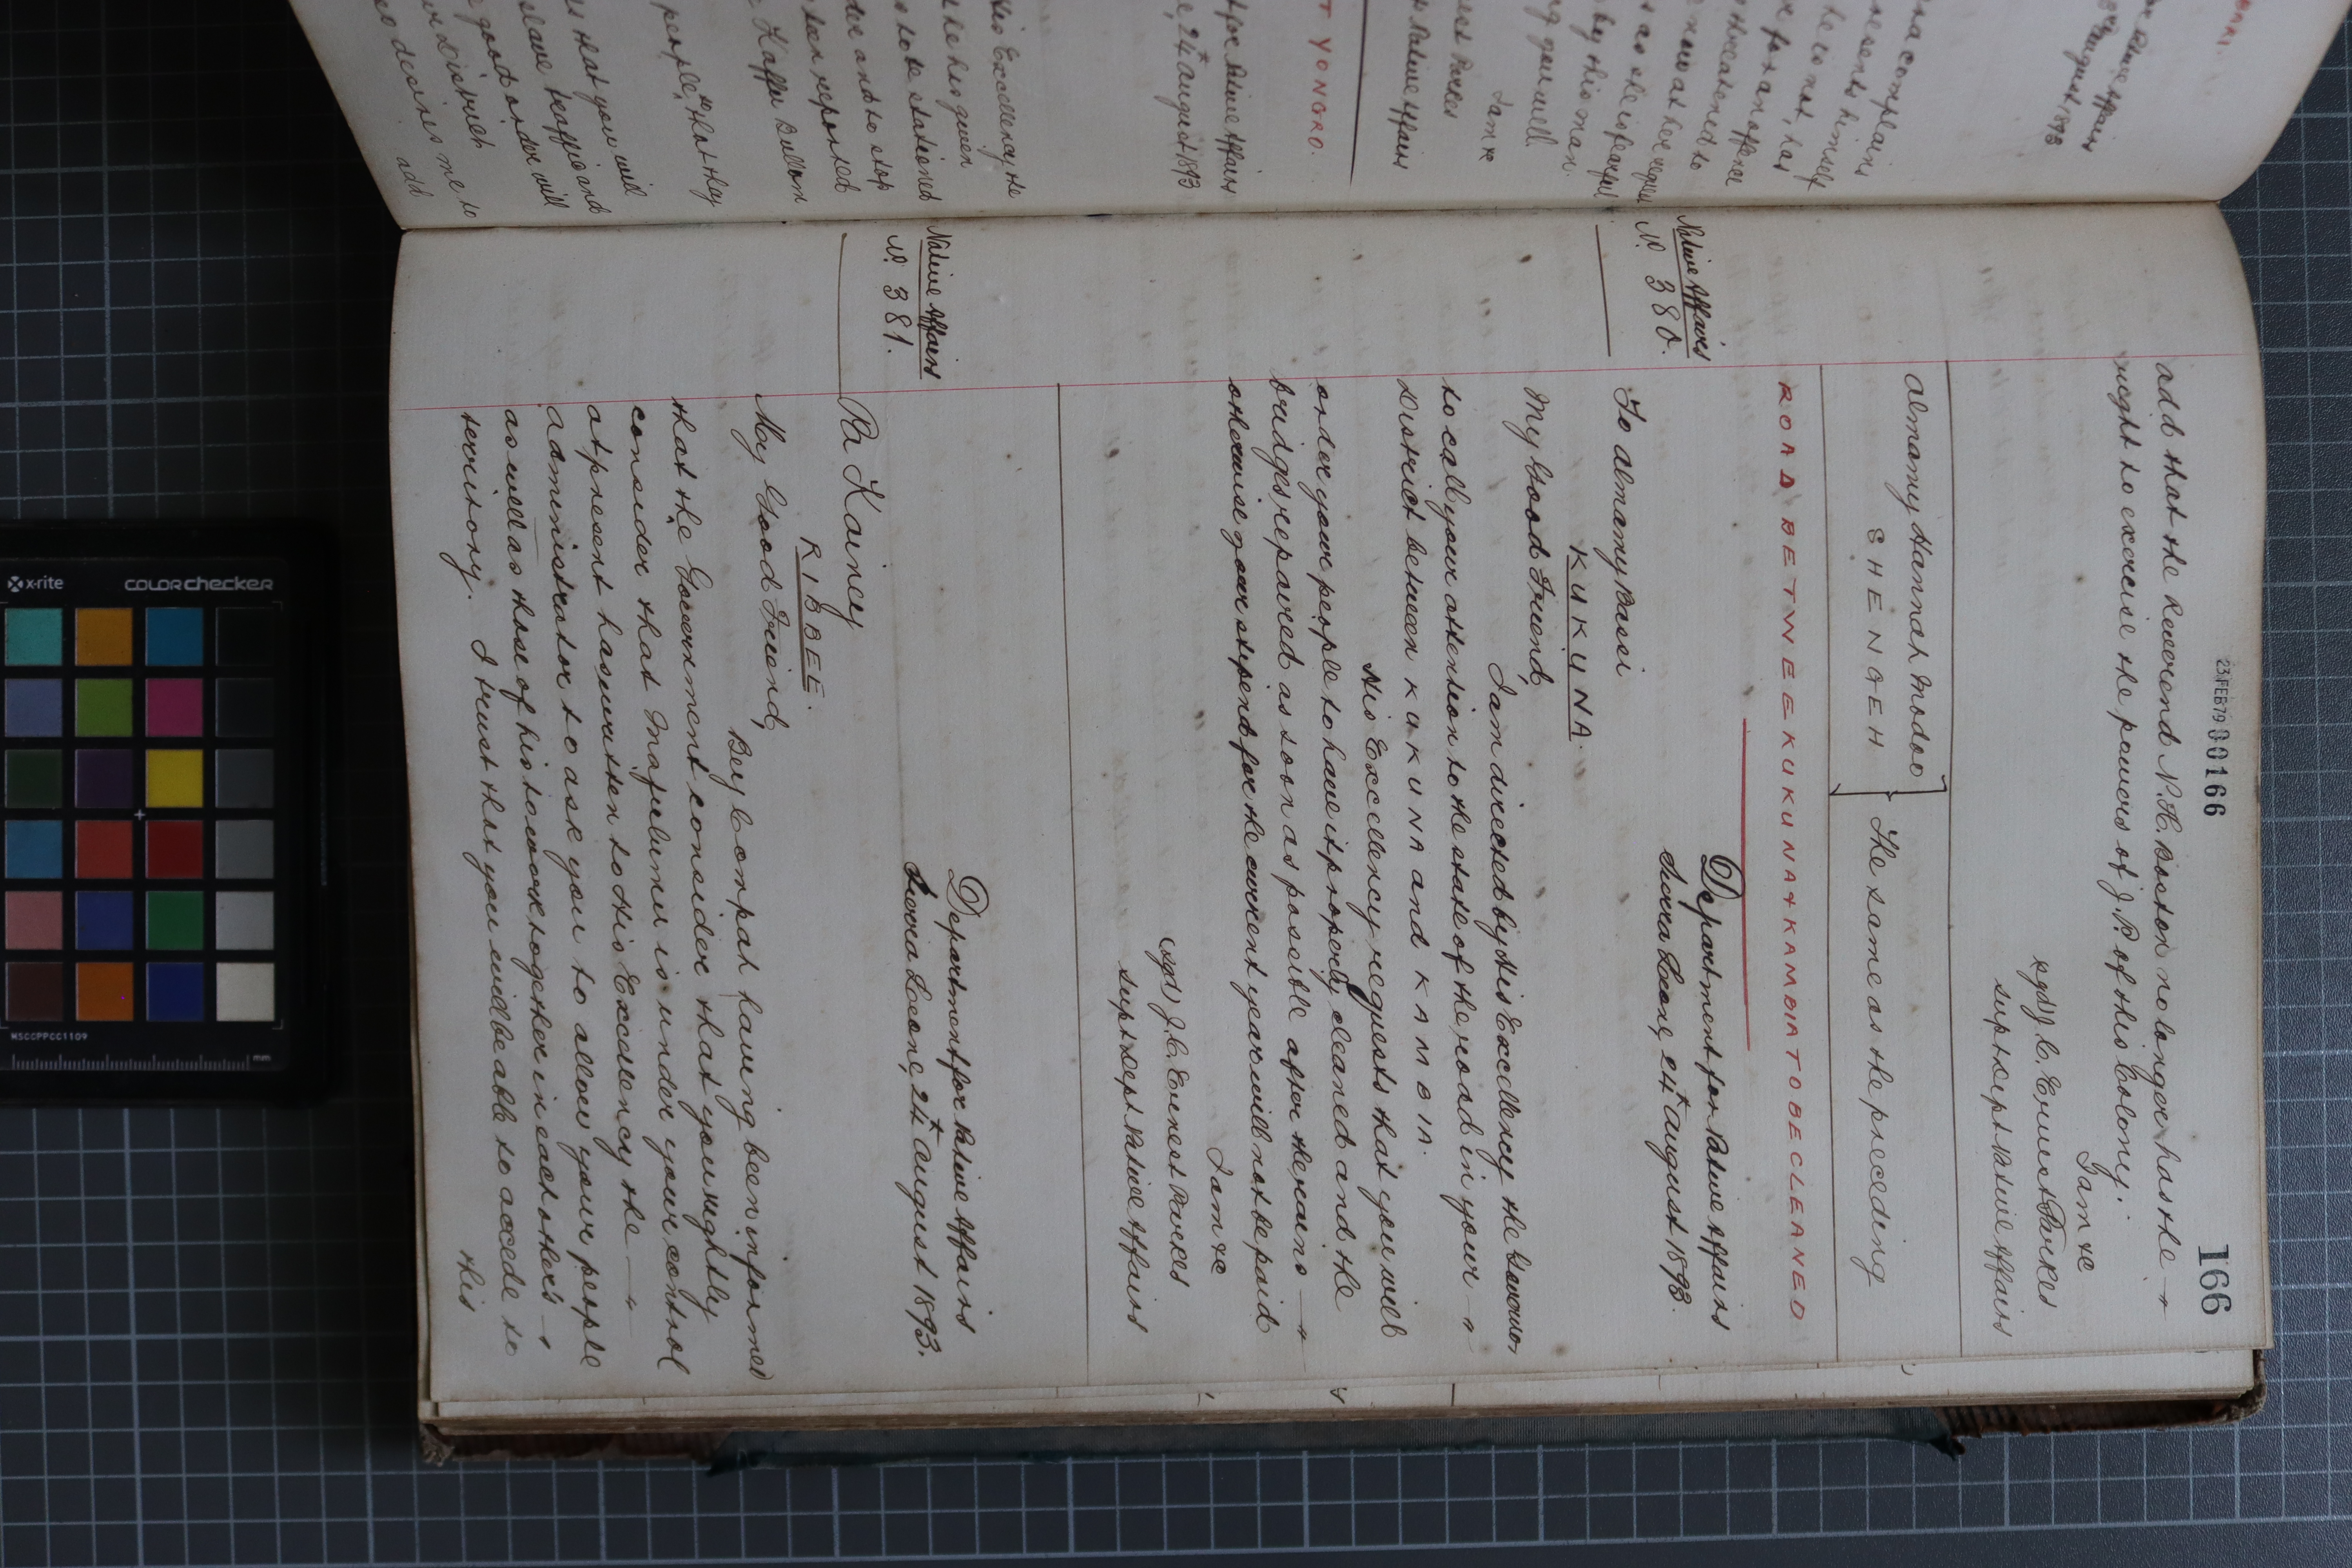 23 FEB 79 00166
166
add that the Reverend N. H. Boston no longer has the
right to exercise the powers of J. P. of this Colony.
I am &c
sgd) J. C. Ernest Parkes
Supt Dept Native Affairs
Almamy Hannah Modoo
SHENGEH
The same as the preceding
ROAD BETWEE KUKUNA & KAMBIA TO BE CLEANED
Native Affairs
No. 380.
Department for Native Affairs
Sierra Leone, 24th August 1893.
To Almamy Bassi
KUKUNA.
My Good Friend,
I am directed by His Excellency the Governor
to call your attention to the state of the road in your
District between KUKUNA and KAMBIA.
His Excellency requests that you will
order your people to have it properly cleaned and the
bridges repaired as soon as possible after the rains
otherwise your stipend for the current year will not be paid
I am &c
(sgd) J. C. Ernest Parkes
Supt Dept Native Affairs
Native Affairs
No. 381.
Department for Native Affairs
Sierra Leone, 24th August 1893.
Pa Kaincy
KIBBEE.
My Good Friend,
Bey Compah having been informed
that the Government consider that you rightly
consider that Mafulumu is under your control
at present has written to His Excellency the
Administrator to ask you to allow your people
as well as those of his to work together in each other's
territory. I trust that you will be able to accede to
this
T YONGRO.
for Native Affairs
24th August 1893
His Excellency the
has given
to be stationed
and to stop
been reported
Kaffu Bullom
people, & that they
that you will
slave traffic and
good order will
District
so desires me to
add
a complains
presents himself
he is not, has
for an offence
threatened to
now at her reques
as she is fearful
by this man.
g you well
I am &c
nest Parkes
Native Affairs
for Native Affairs
August 1893
x-rite
COLORchecker
MSCCPPCC1109
mm